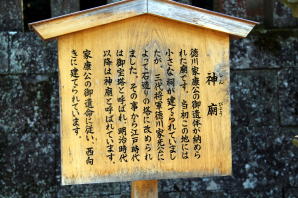 神廟
しん びょう
徳川家康公の御遺体が納めら
れた廟です。当初この地には
小さな祠が建てられていまし
たが、三代将軍徳川家光公に
よって石造りの塔に改められ
ました。その事から江戸時代
は御宝塔と呼ばれ、明治時代
以降は神廟と呼ばれています。
家康公の御遺命に従い、西向
きに建てられています。